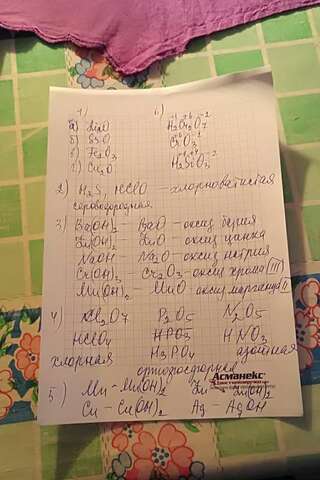 1)
а) Li₂O
б) BaO
в) Fe₂O₃
г) Cu₂O
6)
+1 +6 -2
H₂Cr₂O₇
+6 -2
CrO₃
+4 -2
H₂SiO₃
2) H₂S, HClO - хлорноватистая
сероводородная
3) Ba(OH)₂ - BaO - оксид бария
Zn(OH)₂ - ZnO - оксид цинка
NaOH - Na₂O - оксид натрия
Cr(OH)₃ - Cr₂O₃ - оксид хрома (III)
Mn(OH)₂ - MnO - оксид марганца II
4) Cl₂O7 P₂O5 N₂O5
HClO₄ HPO3 HNO3
хлорная H₃PO4 азотная
ортофосфорная
Асманекс®
5) Mn - Mn(OH)₂ Zn - Zn(OH)₂
Cu - Cu(OH)₂ Ag - AgOH